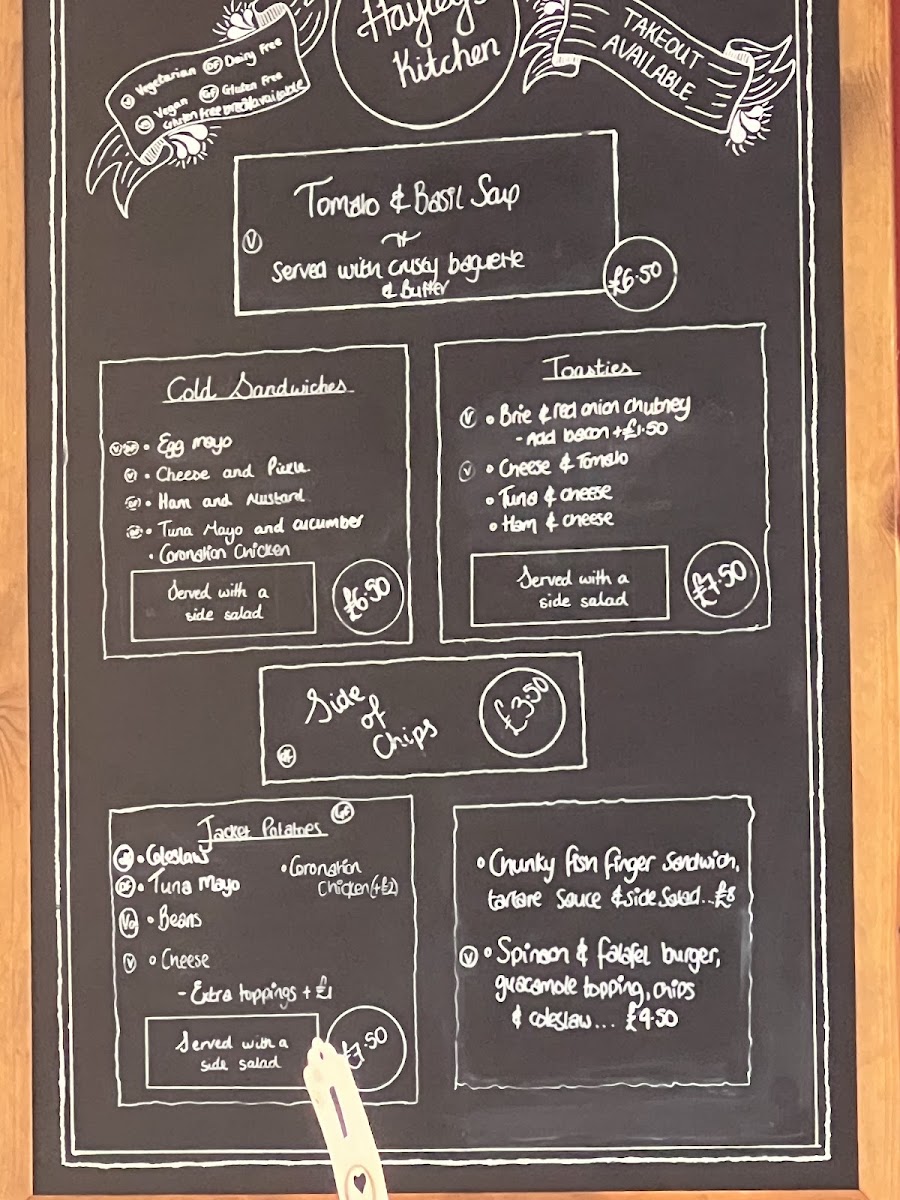 Hayley's
Kitchen
V Vegetarian DF Dairy Free
VG Vegan GF Gluten Free
Gluten free bread available
TAKEOUT
AVAILABLE
Tomato & Basil Soup
V
Served with crusty baguette
& Butter
£6.50
Cold Sandwiches
V DF • Egg mayo
V • Cheese and Pickle
DF • Ham and Mustard
DF • Tuna Mayo and cucumber
• Coronation Chicken
Served with a
side salad
£6.50
Toasties
V • Brie & red onion chutney
- Add bacon + £1.50
V • Cheese & Tomato
• Tuna & cheese
• Ham & cheese
Served with a
side salad
£7.50
Side
of
Chips
£3.50
Jacket Potatoes GF
• Coleslaw
DF • Tuna Mayo
• Coronation
Chicken (+£2)
VG • Beans
V • Cheese
- Extra toppings + £1
Served with a
side salad
£7.50
• Chunky fish finger sandwich,
tartare sauce & side salad...£8
V • Spinach & falafel burger,
guacamole topping, chips
& coleslaw... £9.50